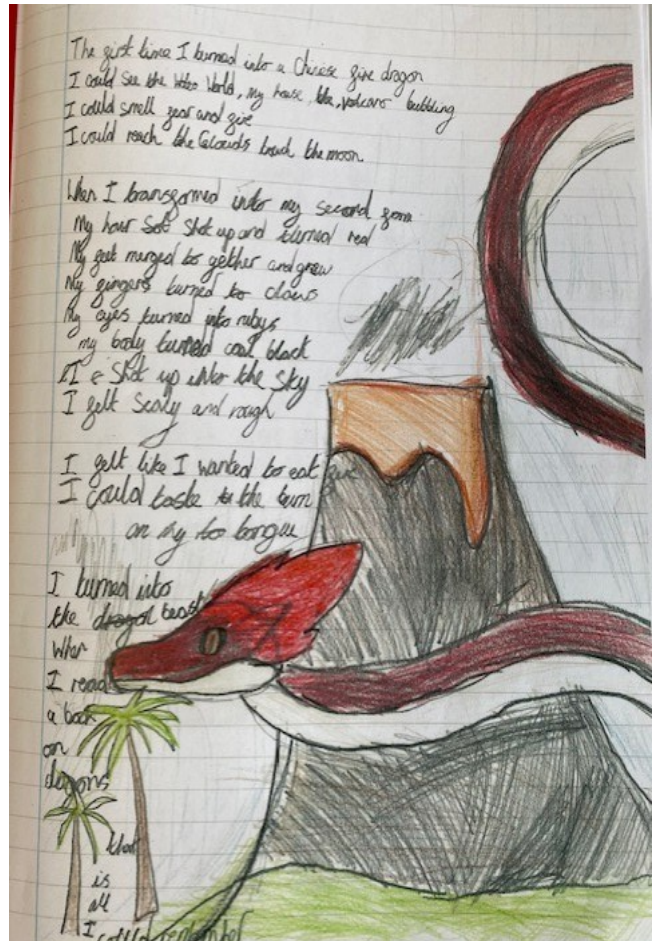 The first time I turned into a Chinese fire dragon
I could see the World, my house, the, volcano bubbling
I could smell fear and fire
I could reach the Clouds touch the moon.
When I transformed into my second form
My hair Shot up and turned red
My feet merged to gether and grew
My fingers turned to claws
My eyes turned into rubys
my body turned coal black
I Shot up into the sky
I felt Scaly and rough
I felt like I wanted to eat fire
I could taste the burn
on my tongue
I turned into
the dragon beast
When
I read
a book
on
dragons
that
is
all
I
could remember